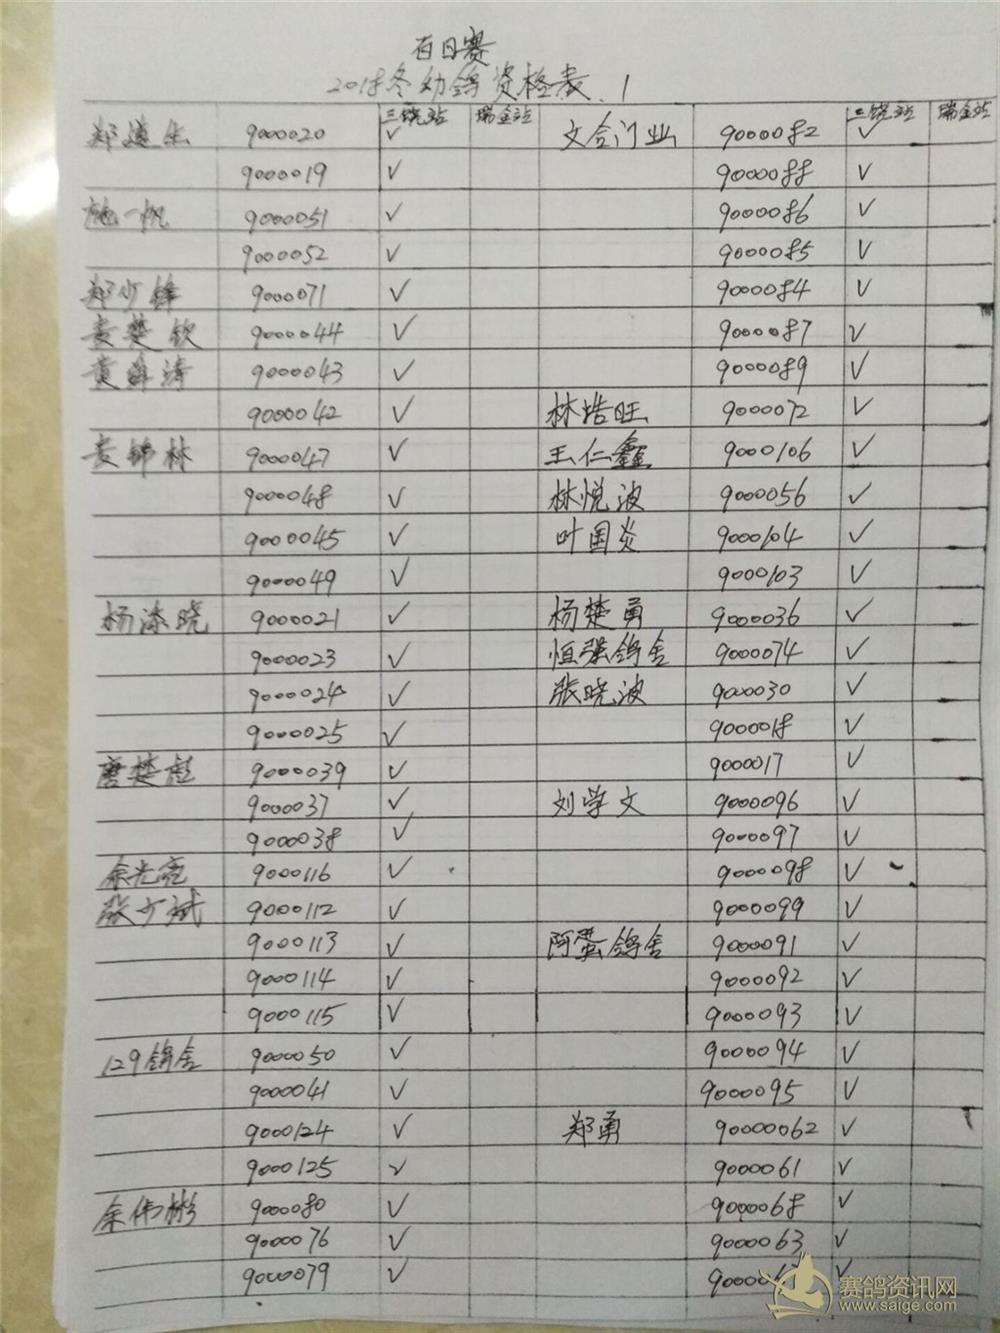 百日赛
2018冬幼鸽资格表.1
三饶站 瑞金站 三饶站 瑞金站
郑 9000020 ✓ 文合门业 9000082 ✓
9000019 ✓ 9000088 ✓
施一帆 9000051 ✓ 9000086 ✓
9000052 ✓ 9000085 ✓
郑少锋 9000071 ✓ 9000084 ✓
黄楚钦 9000044 ✓ 9000087 ✓
黄 涛 9000043 ✓ 9000089 ✓
9000042 ✓ 林浩旺 9000072 ✓
黄锦林 9000047 ✓ 王仁鑫 9000106 ✓
9000048 ✓ 林悦波 9000056 ✓
9000045 ✓ 叶国炎 9000104 ✓
9000049 ✓ 9000103 ✓
杨 晓 9000021 ✓ 杨楚勇 9000036 ✓
9000023 ✓ 恒强鸽舍 9000074 ✓
9000024 ✓ 张晓波 9000030 ✓
9000025 ✓ 9000018 ✓
楚彪 9000039 ✓ 9000017 ✓
9000037 ✓ 刘学文 9000096 ✓
9000038 ✓ 9000097 ✓
余光亮 9000116 ✓ 9000098 ✓
张少斌 9000112 ✓ 9000099 ✓
9000113 ✓ 阿蛋鸽舍 9000091 ✓
9000114 ✓ 9000092 ✓
9000115 ✓ 9000093 ✓
129鸽舍 9000050 ✓ 9000094 ✓
9000041 ✓ 9000095 ✓
9000124 ✓ 郑勇 90000062 ✓
9000125 ✓ 9000061 ✓
余伟彬 9000080 ✓ 9000068 ✓
9000076 ✓ 9000063 ✓
9000079 ✓ ✓
赛鸽资讯网
www.saige.com